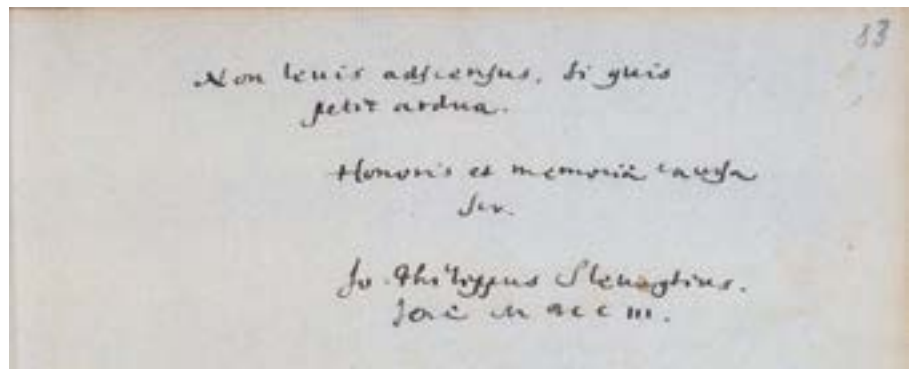 83
Non levis adscensus, si quis
petit ardua.
Honoris et memoriæ causa
scr.
Jo. Philippus Slevogtius.